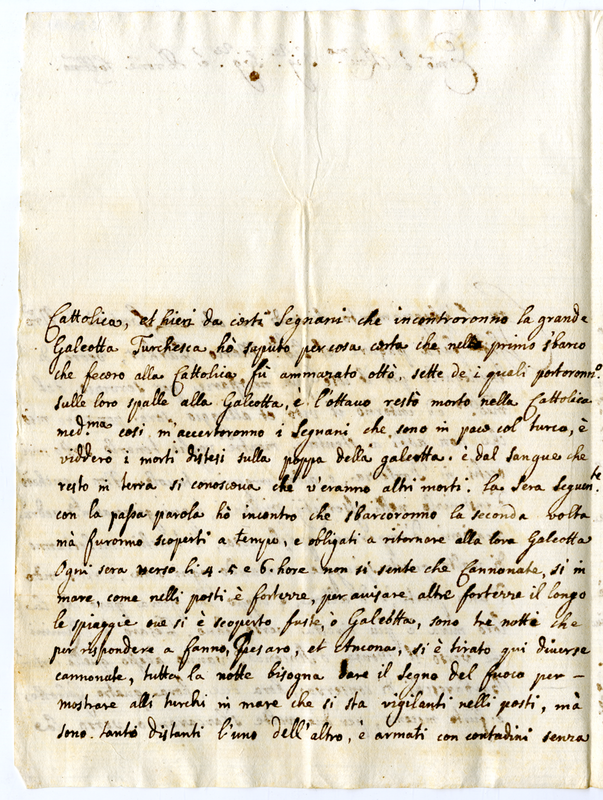 Cattolica, et hieri da certi Segnani che incontroronno la grande
Galeotta Turchesca hò saputo per cosa certa che nello primo sbarco
che fecero alla Cattolica fù ammazato ottò, sette de i quali portoronno
sulle loro spalle alla Galeotta, e l'ottavo restò morto nella Cattolica
medma così m'accertoronno i Segnani che sono in pace col turco, è
vidderò i morti distesi sulla poppa della galeotta. è dal sangue che
restò in terra si conosceva che v'eranno altri morti. la sera seguente
con la passa parola hò incontro che sbarcoronno la seconda volta
mà furonno scoperti a tempo, e obligati a ritornare alla loro Galeotta
Ogni sera verso li 4. 5 e 6. hore non si sente che Cannonate, si in
mare, come nelli posti è forterze, per avisare altre forterze il longo
le spiaggie ove si è scoperto fuste, ò Galeotta, sono tre notte che
per rispondere a fanno, Pesaro, et Ancona, si è tirato qui diverse
cannonate, tutta la notte bisogna dare il segno del fuoco per -
mostrare alli turchi in mare che si sta vigilanti nelli posti, mà
sono tanto distanti l'uno dell'altro, è armati con contadini senza